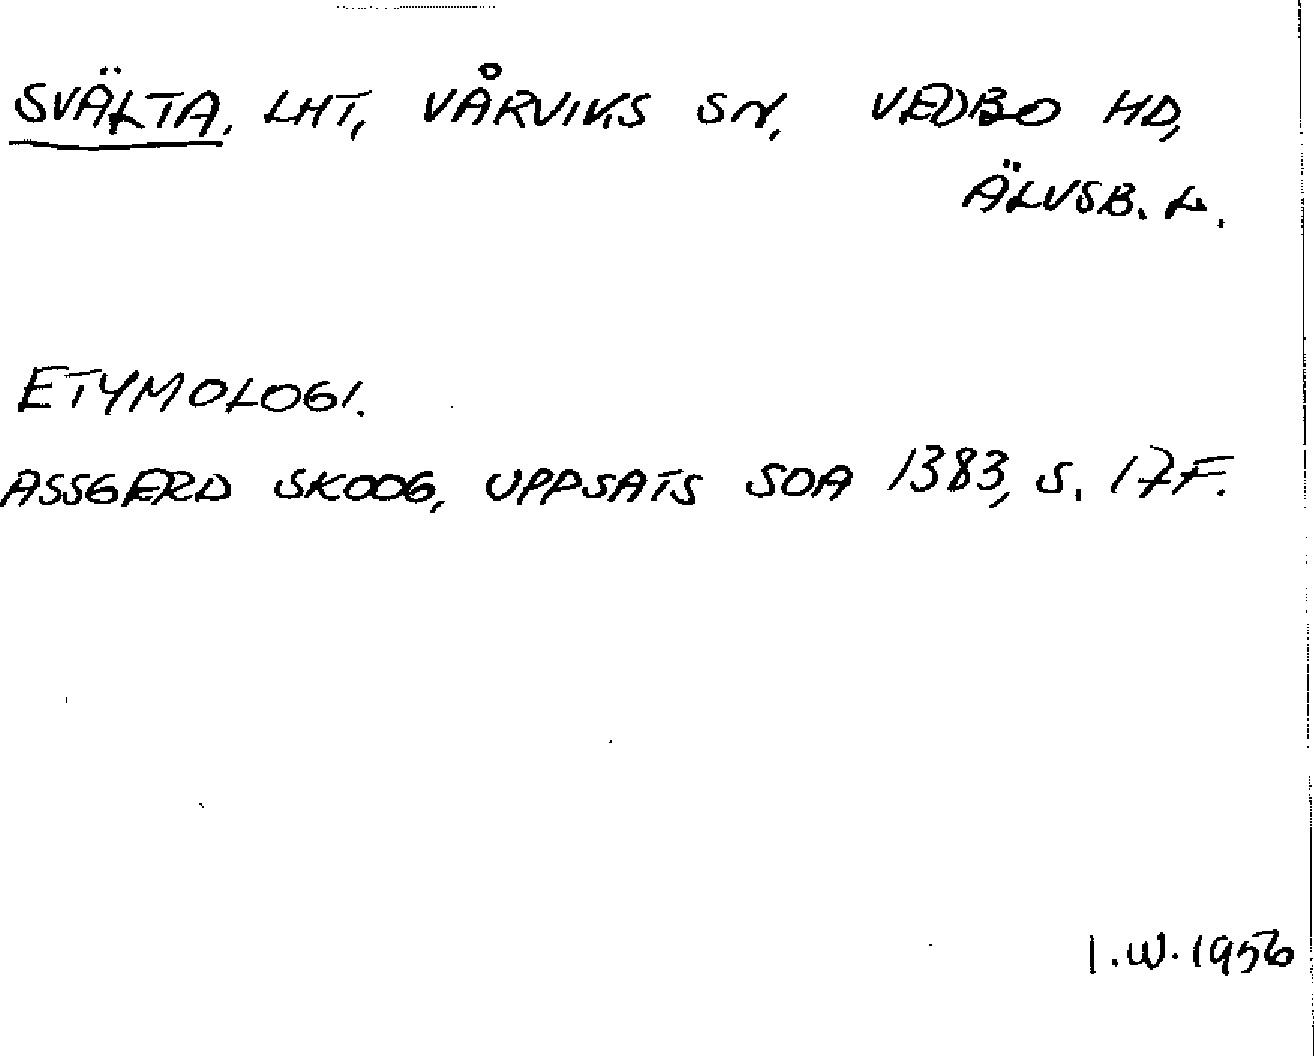 SVÄLTA, LHT, VÅRVIKS SN, VEDBO HD,
ÄLVSB. L.
ETYMOLOGI.
ASSGERD SKOOG, UPPSATS SOA 1383, S. 17F.
I.W. 1956